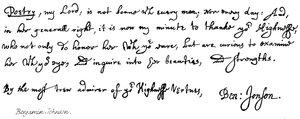 Poetry, my Lord, is not borne wth every man; Nor every day: And,
in her generall right, it is now my minute to thanke yor Highnesse,
who not only do honor her wth yor eare, but are curious to examine
her wth yor eye, & inquire into her beauties, & strengths.
By the most trew admirer of yor Highnesse Vertues,
Ben: Jonson.
Benjamin Johnson